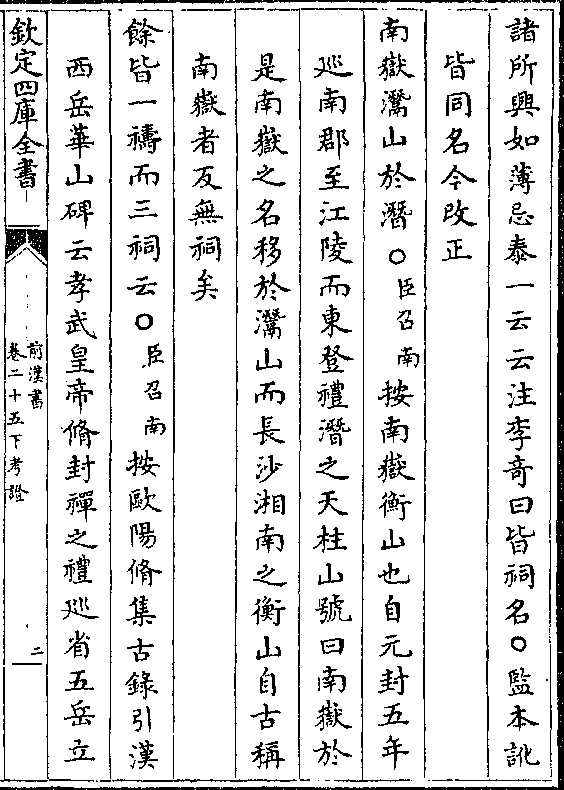 諸所興如薄忌泰一云云注李奇曰皆祠名○監本訛
皆同名今改正
南嶽灊山於潛○臣召南按南嶽衡山也自元封五年
巡南郡至江陵而東登禮潛之天柱山號曰南嶽於
是南嶽之名移於灊山而長沙湘南之衡山自古稱
南嶽者反無祠矣
餘皆一禱而三祠云○臣召南按歐陽脩集古錄引漢
西岳華山碑云孝武皇帝脩封禪之禮巡省五岳立
欽定四庫全書
前漢書
卷二十五下考證
二